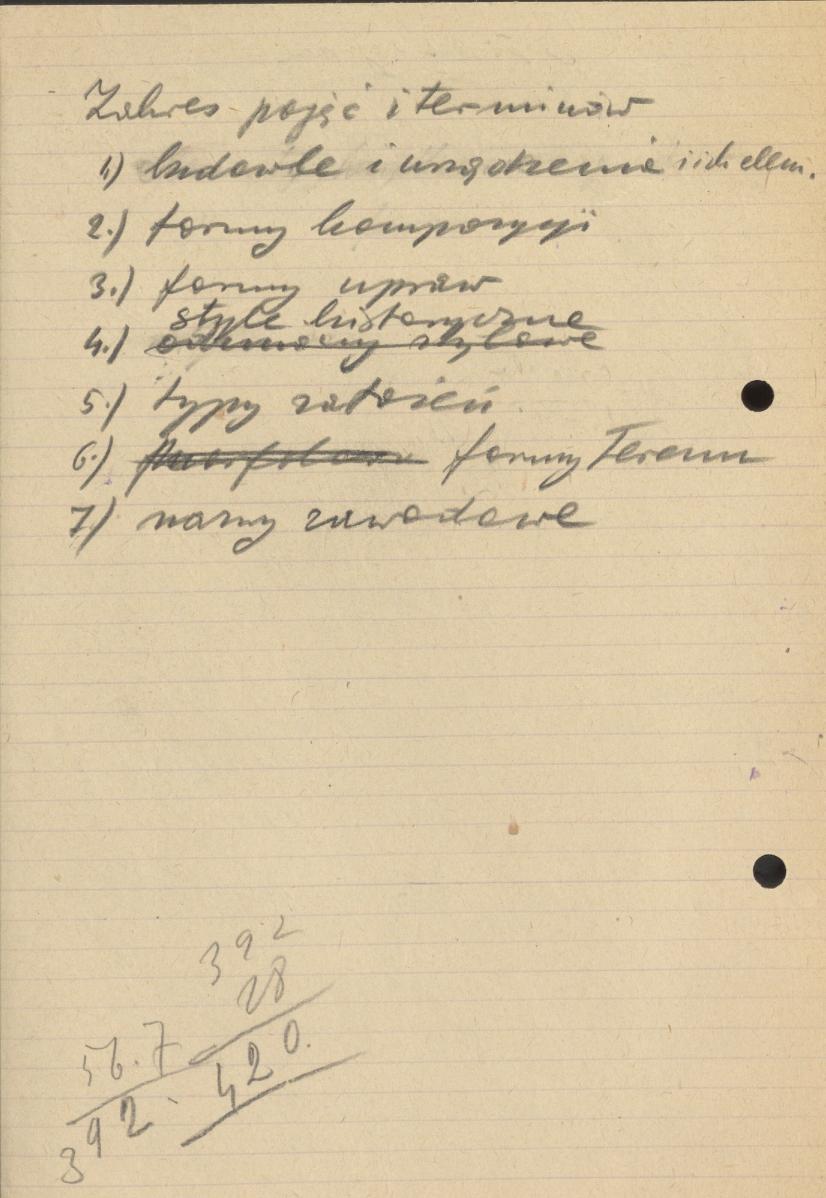 Zakres pojęć i terminów
1.) budowle i urządzenia i ich elem.
2.) formy kompozycji
3.) formy upraw
style historyczne
4.) odmiany stylowe
5.) typy założeń
6.) formy terenu
7.) nazwy zawodowe
392
28
56.7
420.
392.